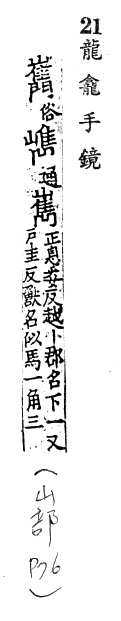 21 龍龕手鏡
俗 通 巂 正息委反越卜郡名下一又
戶圭反獸名似馬一角三
(山部 P76)